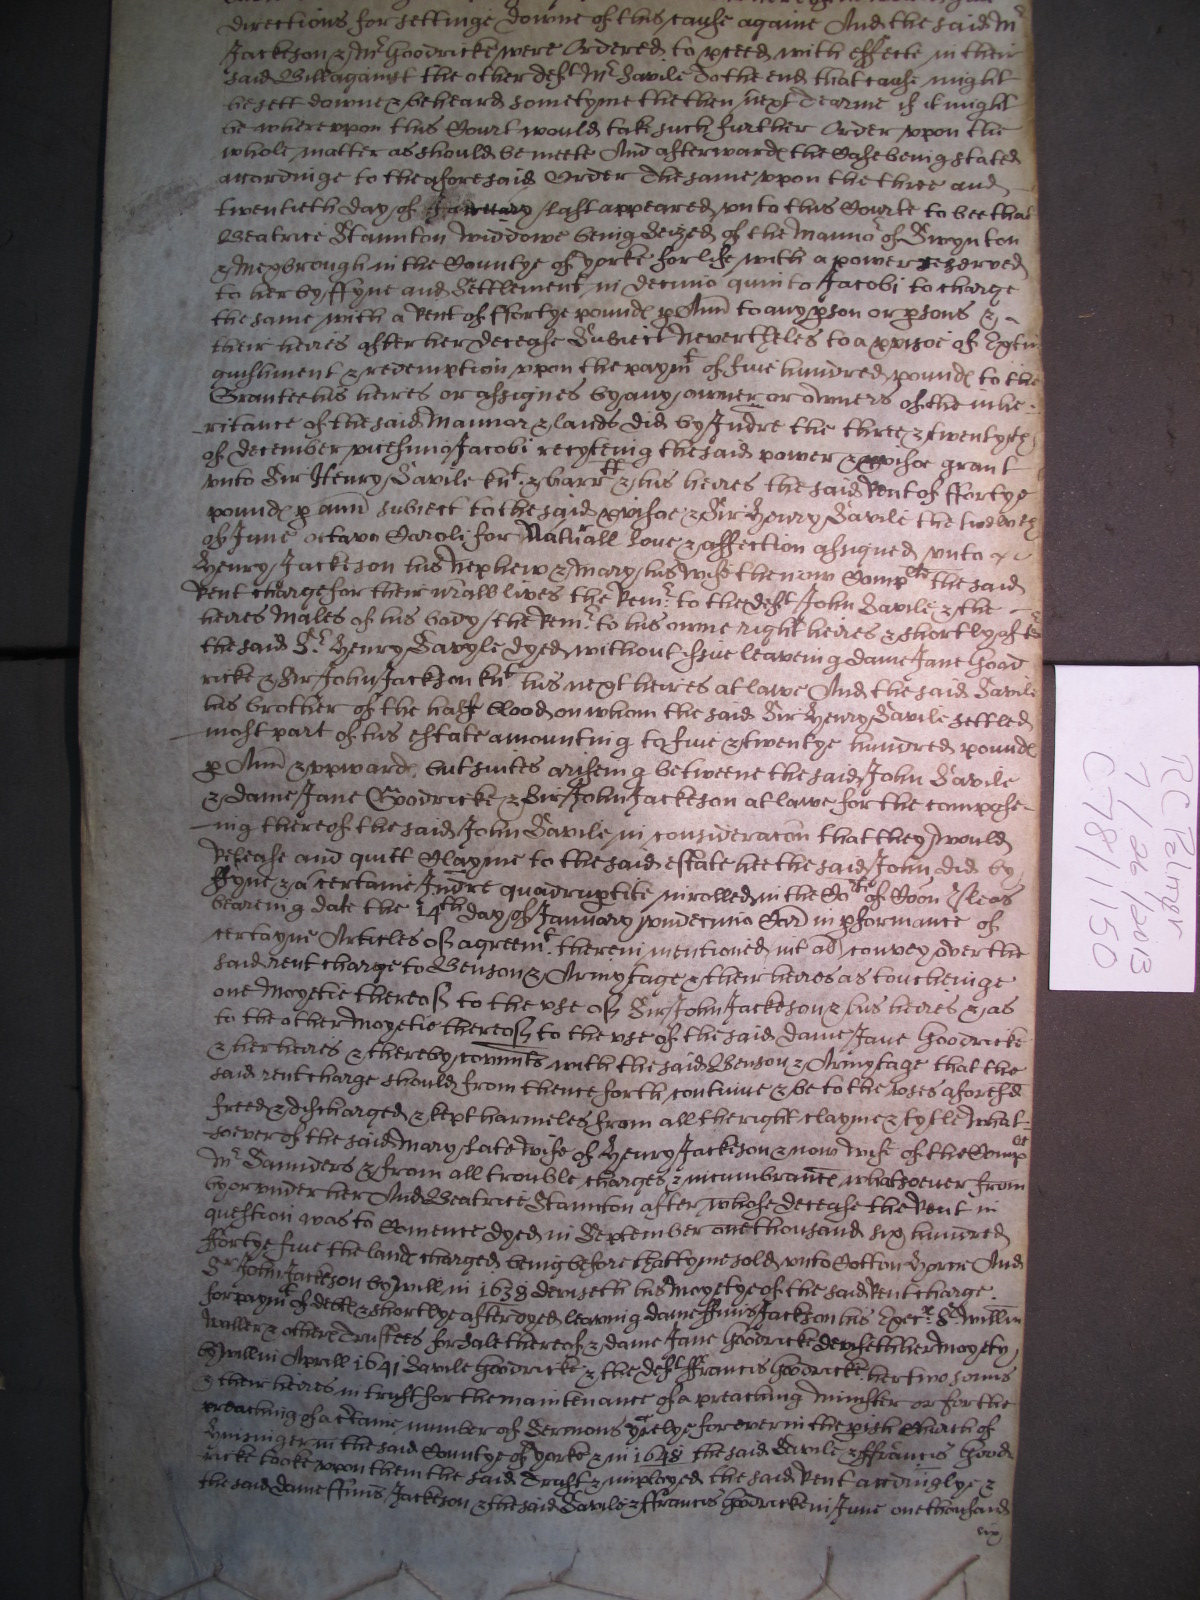 directions for settinge downe of this cause againe And the said Mr
Jackson & Mr Goodricke were Ordered to pceed with effecte in their
said Bill against the other deft Mr Savile To the end that cause might
be sett downe & be heard sometyme the then next Tearme if it might
be whereupon this Court would take such further Order upon the
whole matter as should be meete And afterward the Case being stated
accordinge to the aforesaid Order The same upon the three and
twentieth day of January last appeared unto this Courte to bee that
Beatrice Staunton widdowe being Seized of the Mannor of Swynton
& Mexbrough in the Countye of Yorke for life with a power reserved
to her by ffyne and Settlement in decimo quinto Jacobi to charge
the same with a Rent of ffortye pound p Ann to any pson or psons &
their heires after her decease Subiect Nevertheles to a pvisoe of Extin
guishment & redemption upon the paymt of five hundred pound to the
Grantee his heires or assignes by any owner or owners of the inhe
ritance of the said Mannor & lands did by Indre the three & twentyeth
of december vicesimo Jacobi reciteing the said power & pvisoe grant
unto Sir Henry Savile knt & barrtt & his heires the said Rent of ffortye
pound p ann subiect to the said pvisoe & Sir Henry Savile the twelveth
of June octavo Caroli for Naturall love & affection assigned unto
Henry Jackson his Nephew & Mary his wife the now Compltt the said
Rent charge for their naturall lives the Remr to the deft John Savile & the
heires Males of his body the Remr to his owne right heires & shortly after
the said Sr Henry Savyle dyed without issue leaveing dame Jane Good
ricke & Sir John Jackson knt his next heires at lawe And the said Savile
his brother of the halfe blood on whom the said Sir Henry Savile settled
most part of his estate amounting to five & twentye hundred pound
p Ann & upward, but suites ariseing betweene the said John Savile
& dame Jane Goodricke & Sir John Jackson at lawe for the compose
ing thereof the said John Savile in consideracon that they would
Release and quitt Clayme to the said estate hee the said John did by
ffyne & a certaine Indre quadruptite inrolled in the Corte of Coon Pleas
beareing date the 14th day of January undecimo Car in pformance of
certayne Articles of agreemt therein mentioned int al convey over the
said rent charge to Benson & Armytage & their heires as toucheinge
one Moyetie thereof to the use of Sir John Jackson & his heires & as
to the other Moyetie thereof to the use of the said dame Jane Goodricke
& her heires & thereby covnnts with the said Benson & Armytage that the
said rent charge should from thence forth continue & be to the uses aforesd
freed & discharged & kept harmeles from all the right clayme & tytle what
soever of the said Mary late wife of Henry Jackson & now wife of the Complt
Mr Saunders & from all trouble charges & incumbrances whatsoever from
by or under her And Beatrice Stanton after whose decease the Rent in
question was to Comence dyed in September one thousand six hundred
ffortye five the land charged being before that tyme sold unto Cotton Horne And
Sr John Jackson by will in 1638 deviseth his Moyetye of the said Rent charge
for paymt of debt & shortlye after dyed leaving dame ffinis Jackson his Execr Sr Willm
Waller & other Trustees for Sale thereof & dame Jane Goodricke deviseth her Moyety
by will in Aprill 1641 Savile Goodricke & the deft ffrancis Goodricke her two sonns
& their heires in trust for the maintenance of a preaching Minister or for the
preaching of a ctaine number of Sermons yrelye for ever in the pish Church of
in the said Countye of Yorke & in 1648 the said Savile & ffrancis Good
ricke tooke upon them the said Trust & imployed the said Rent accdinglye &
the said dame ffinis Jackson & the said Savile & ffrancis Goodricke in June one thousand
six
RC Palmer
7/26/2013
C78/1150